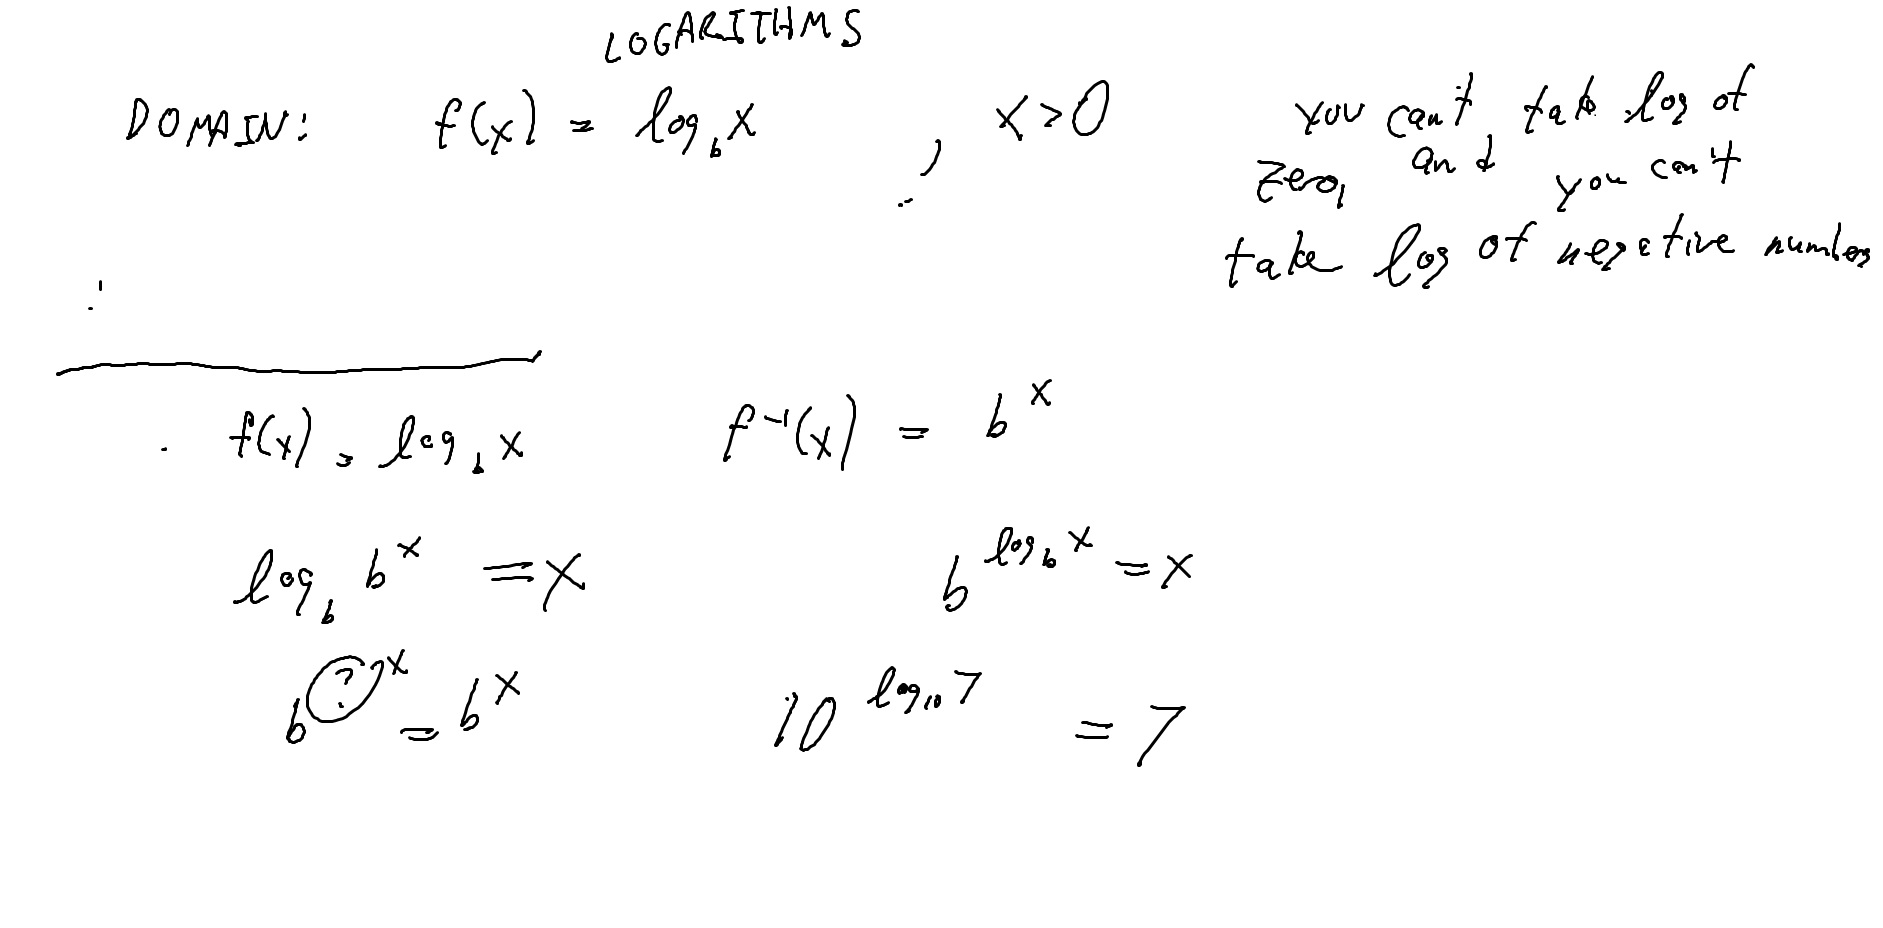 LOGARITHMS
DOMAIN: f(x) = log_b x , x>0
you can't take log of
zero, and you can't
take log of negative numbers
f(x) = log_b x f^-1(x) = b^x
log_b b^x = x b^(log_b x) = x
b^(?)^x = b^x 10^(log_10 7) = 7